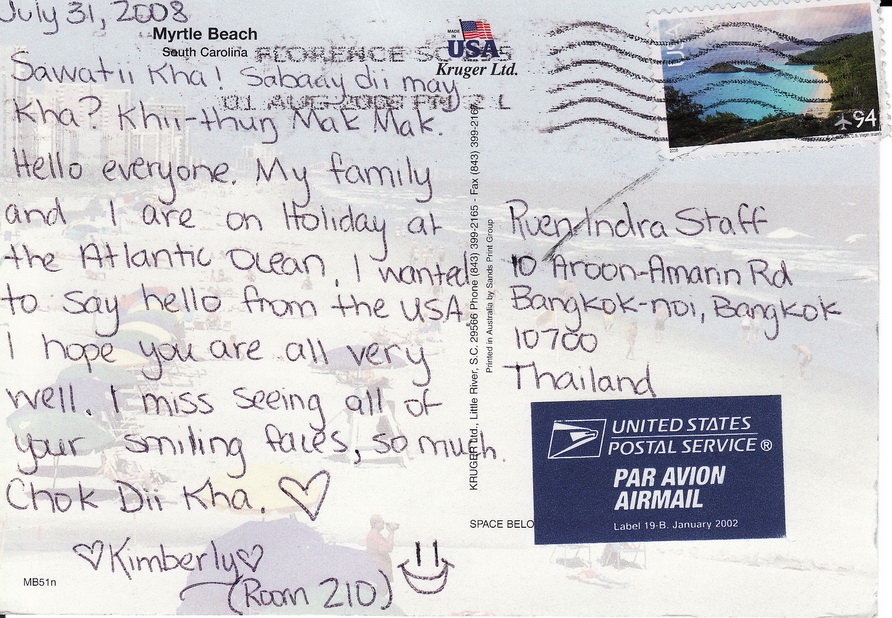 July 31, 2008
Myrtle Beach
South Carolina
Sawatii Kha! Sabaay dii may
Kha? Khii-thung Mak Mak.
Hello everyone. My family
and I are on Holiday at
the Atlantic Ocean. I wanted
to say hello from the USA.
I hope you are all very
well. I miss seeing all of
your smiling faces, so much.
Chok Dii Kha. ♡
♡Kimberly♡
(Room 210)
MB51n
MADE IN
USA
Kruger Ltd.
FLORENCE
01 AUG 2008 PM 2 L
KRUGER Ltd., Little River, S.C. 29566 Phone (843) 399-2165 - Fax (843) 399-2167
Printed in Australia by Sands Print Group
SPACE BELO
USA
94
Ruen-Indra Staff
10 Aroon-Amarin Rd
Bangkok-noi, Bangkok
10700
Thailand
UNITED STATES
POSTAL SERVICE®
PAR AVION
AIRMAIL
Label 19-B, January 2002